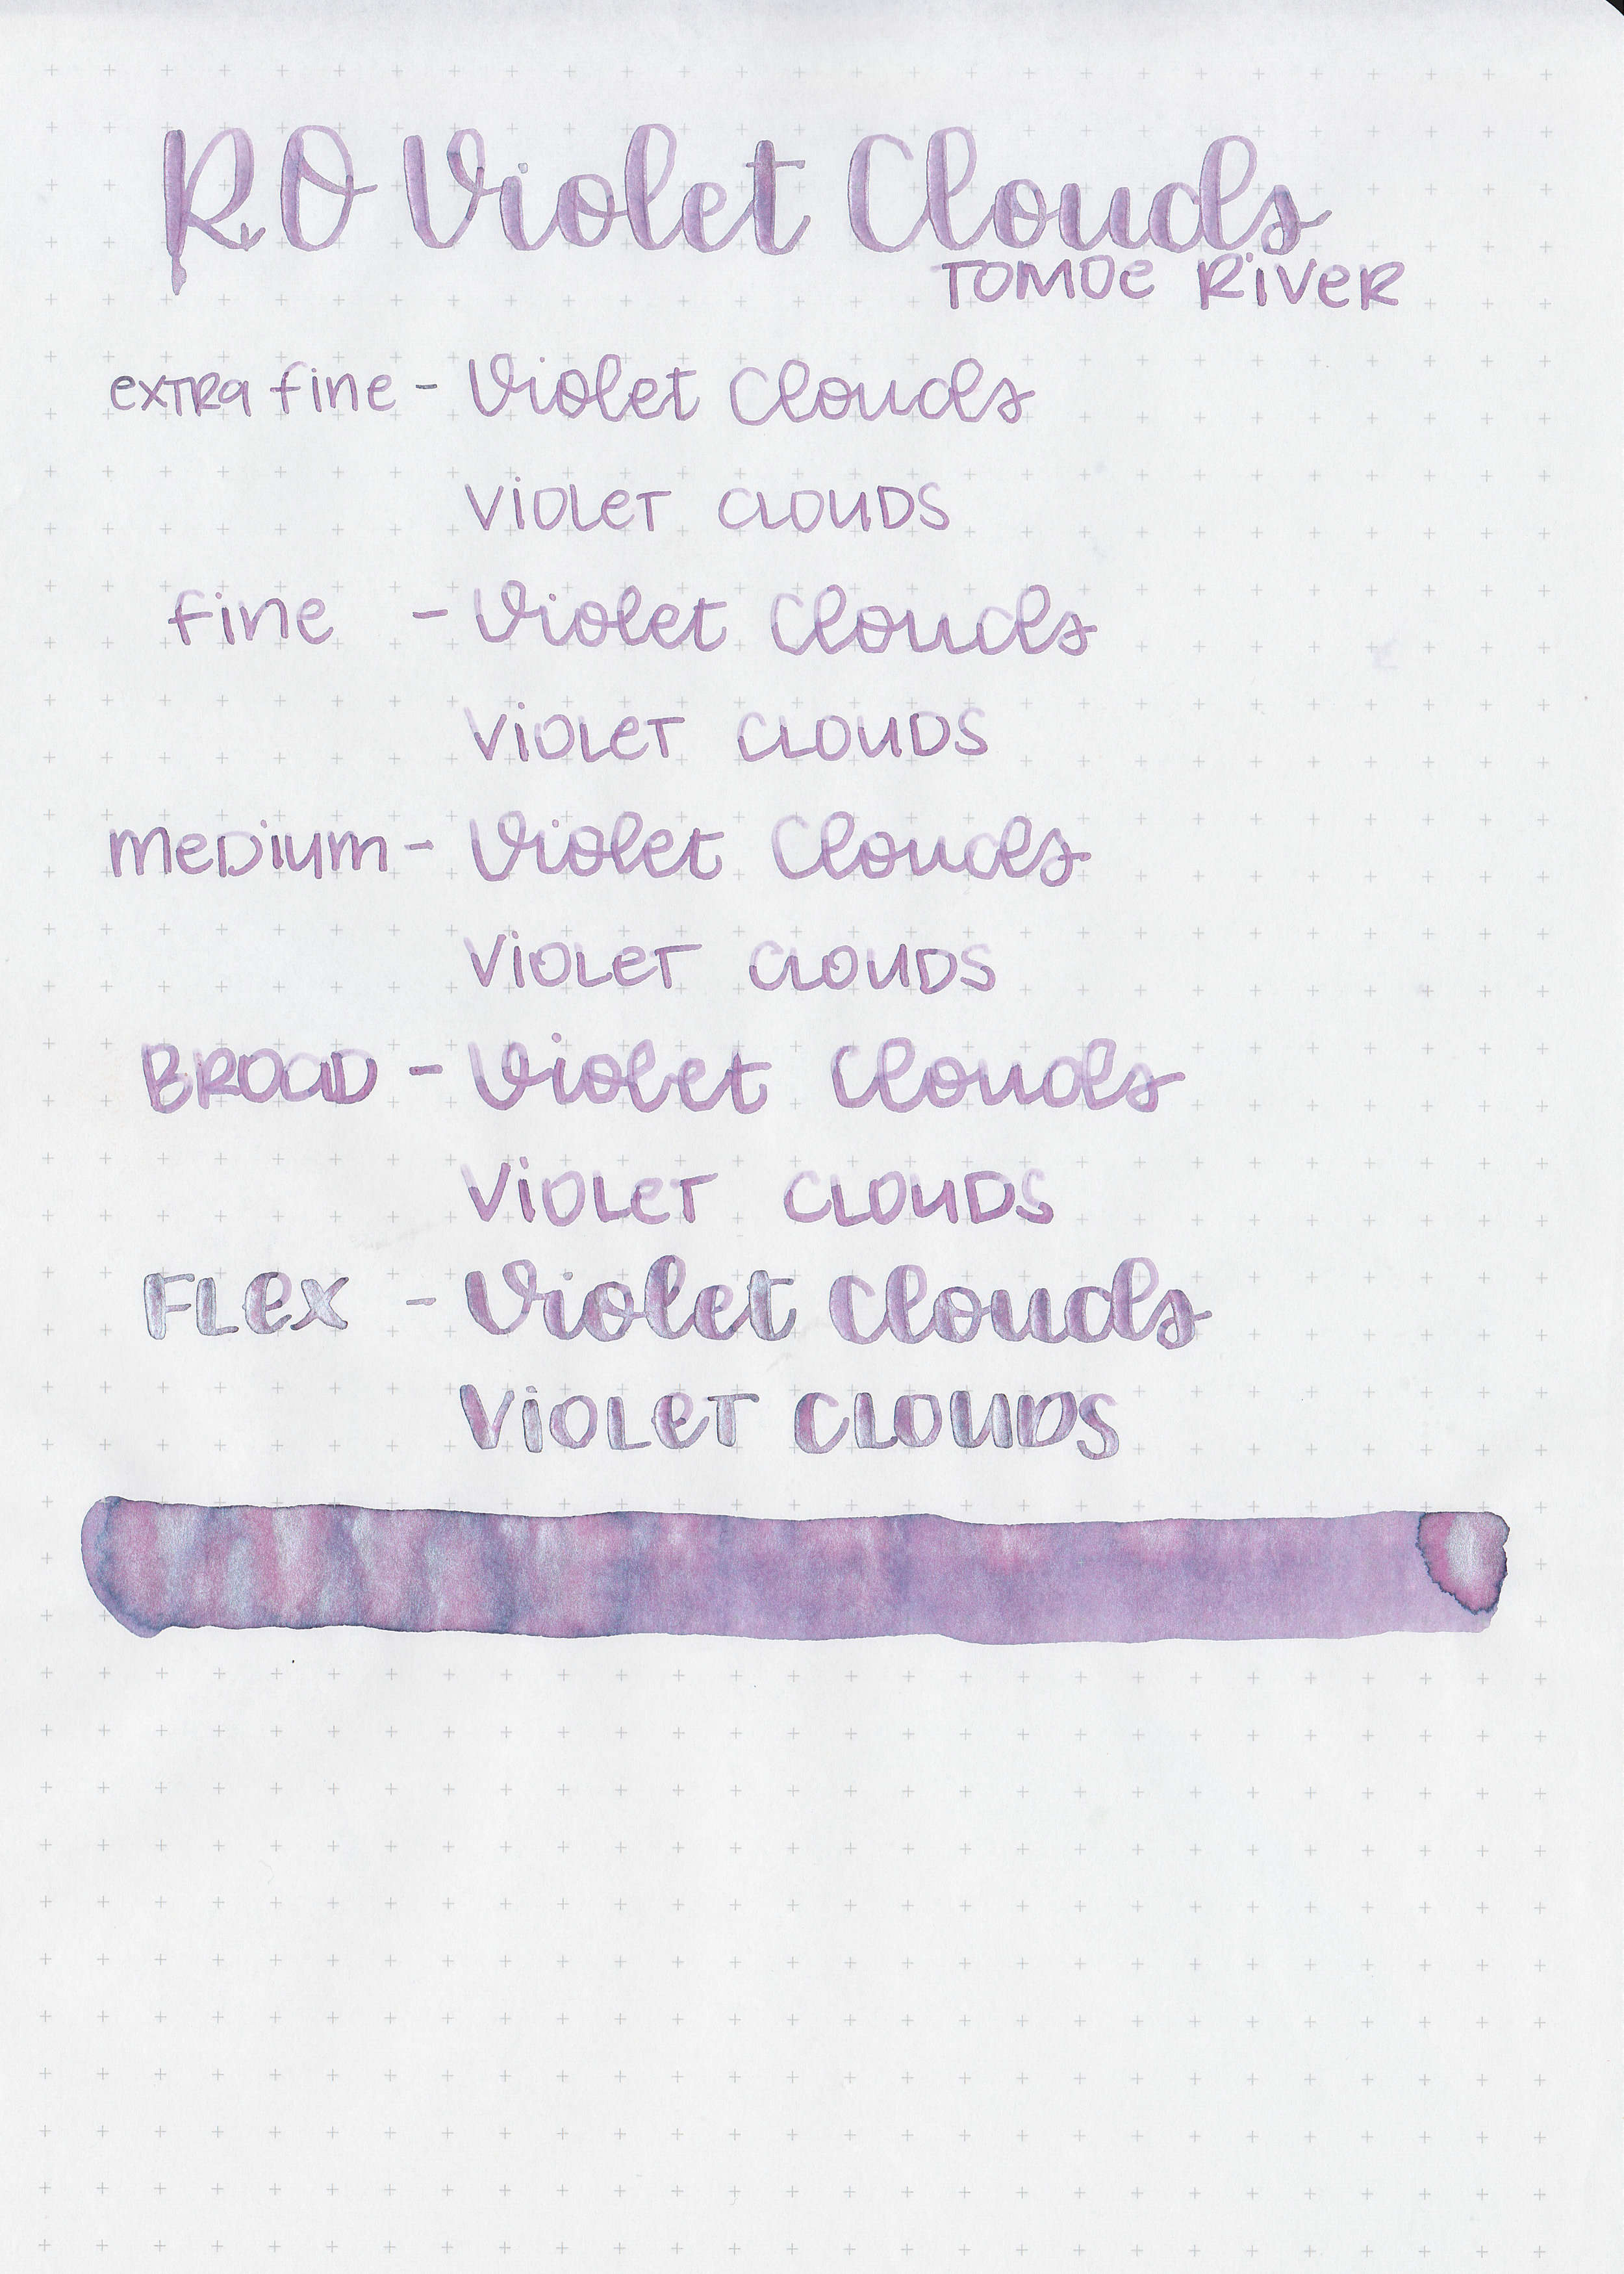 R.O Violet Clouds
TOMOe RiVeR
exTRa fine - Violet Clouds
ViOLeT CLOUDS
fine - Violet Clouds
ViOLeT CLOUDS
meDium - Violet Clouds
ViOLeT CLOUDS
BROAD - Violet Clouds
ViOLeT CLOUDS
FLex - Violet Clouds
ViOLeT CLOUDS